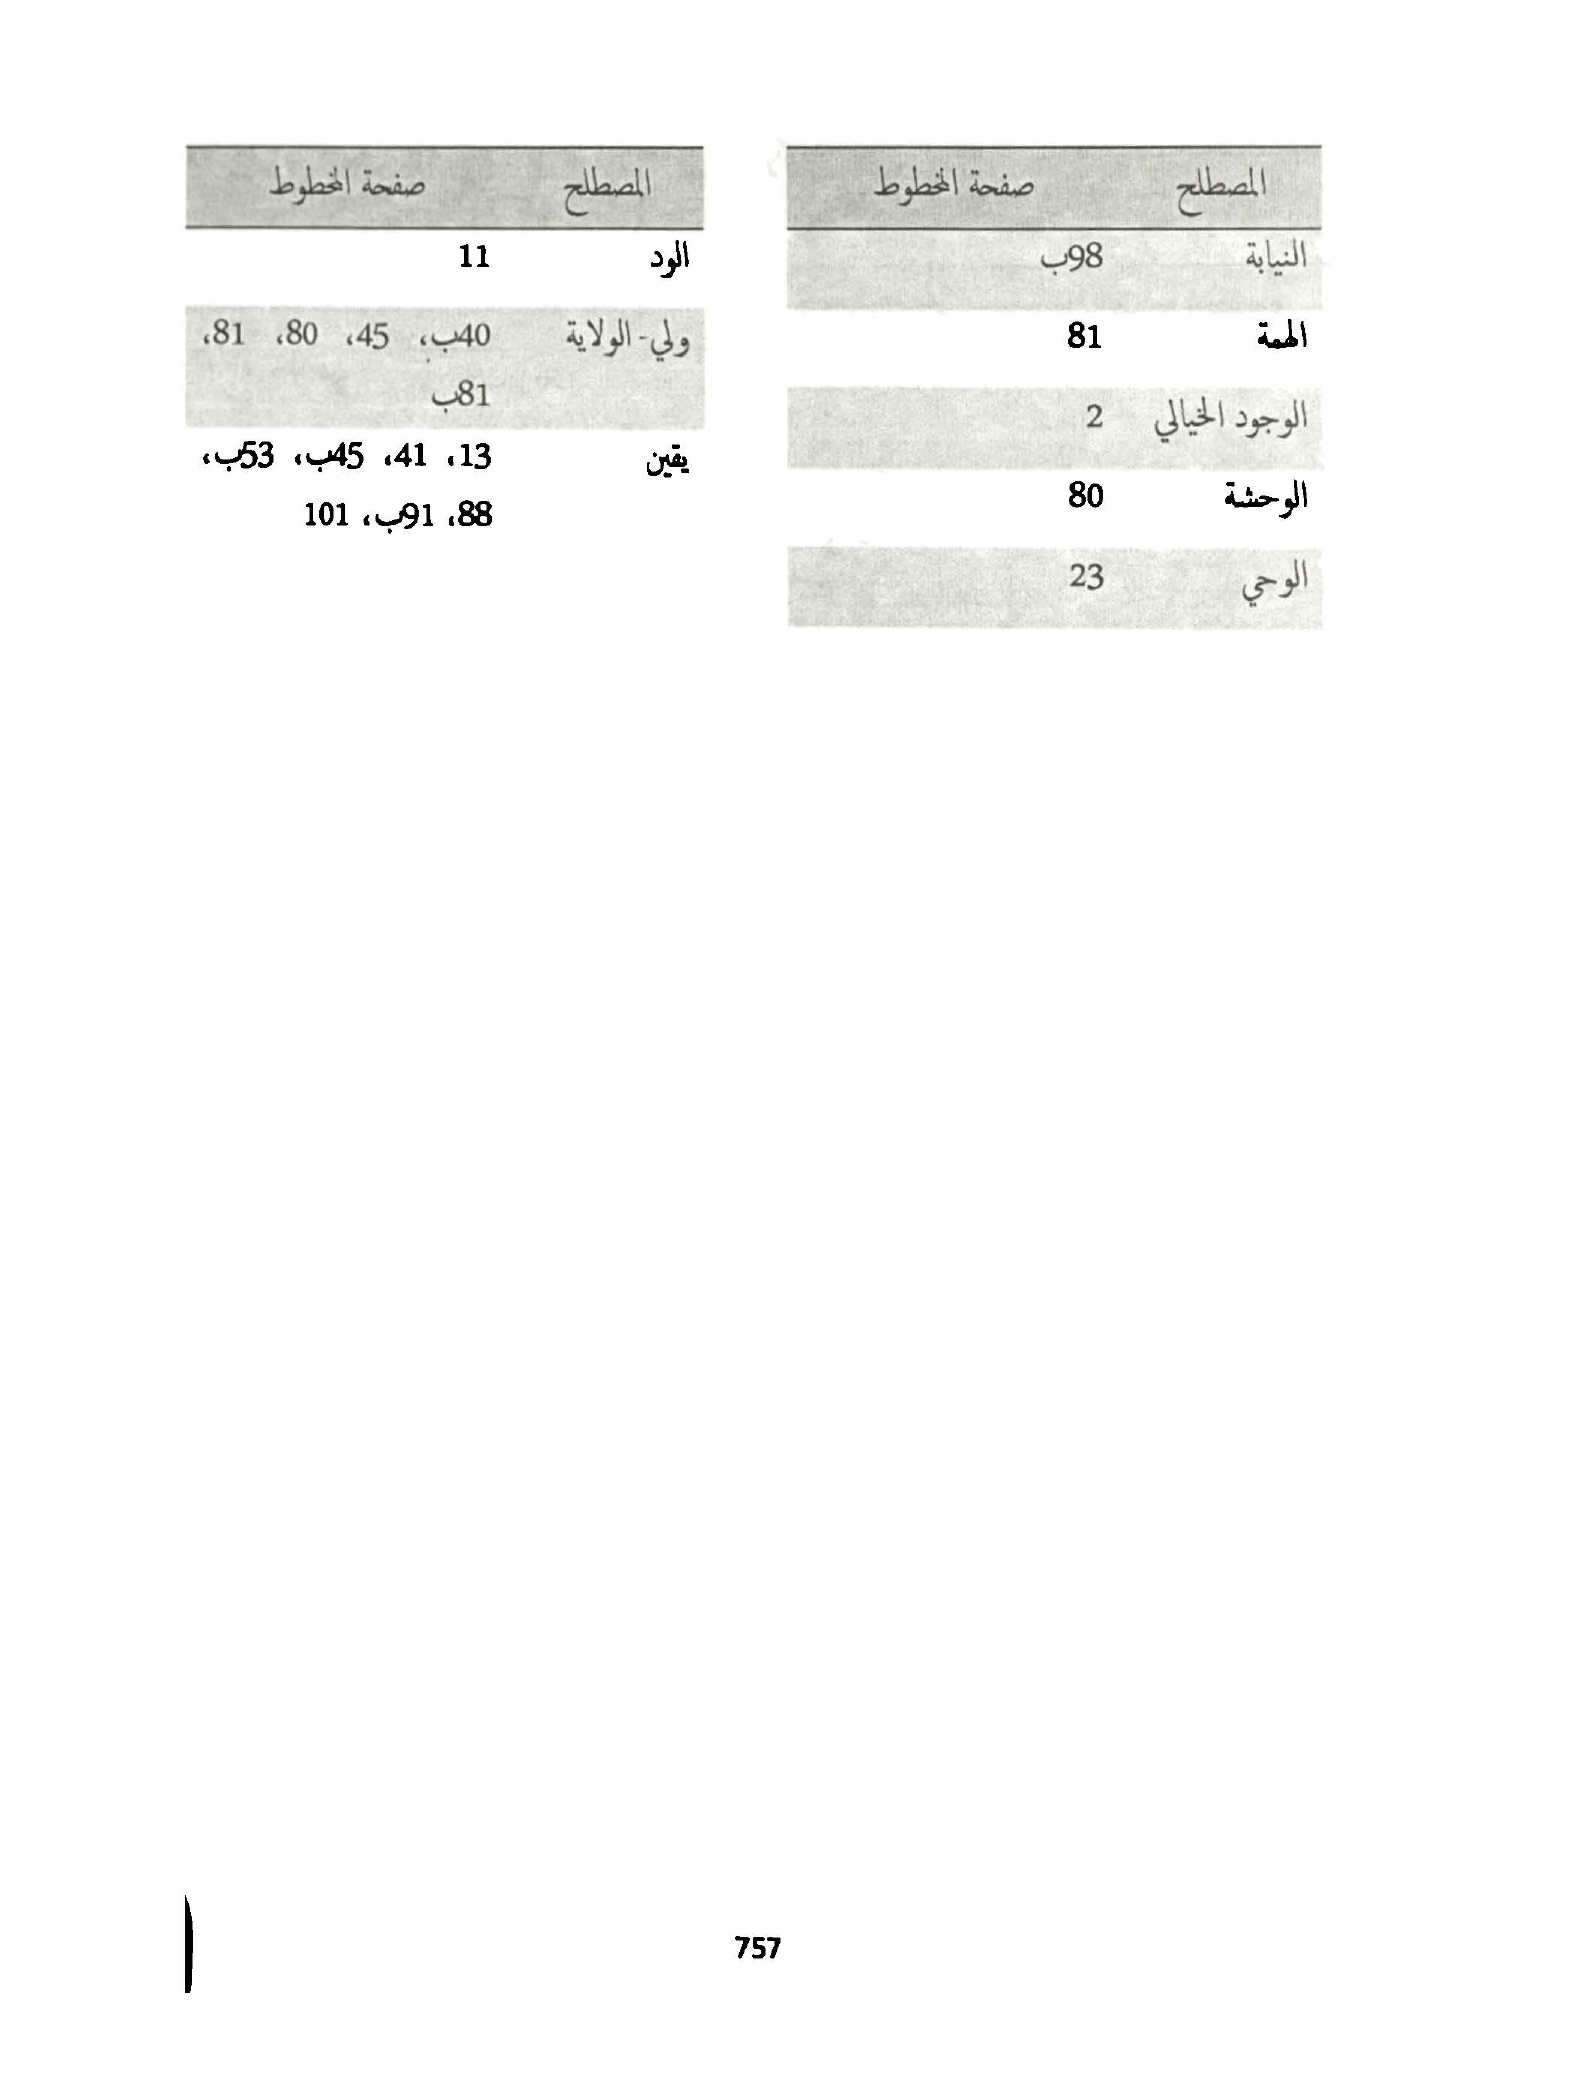 المصطلح صفحة المخطوط
النيابة 98ب
الهمة 81
الوجود الخيالي 2
الوحشة 80
الوحي 23
المصطلح صفحة المخطوط
الود 11
ولي- الولاية 40ب، 45، 80، 81،
81ب
يقين 13، 41، 45ب، 53ب،
88، 91ب، 101
757